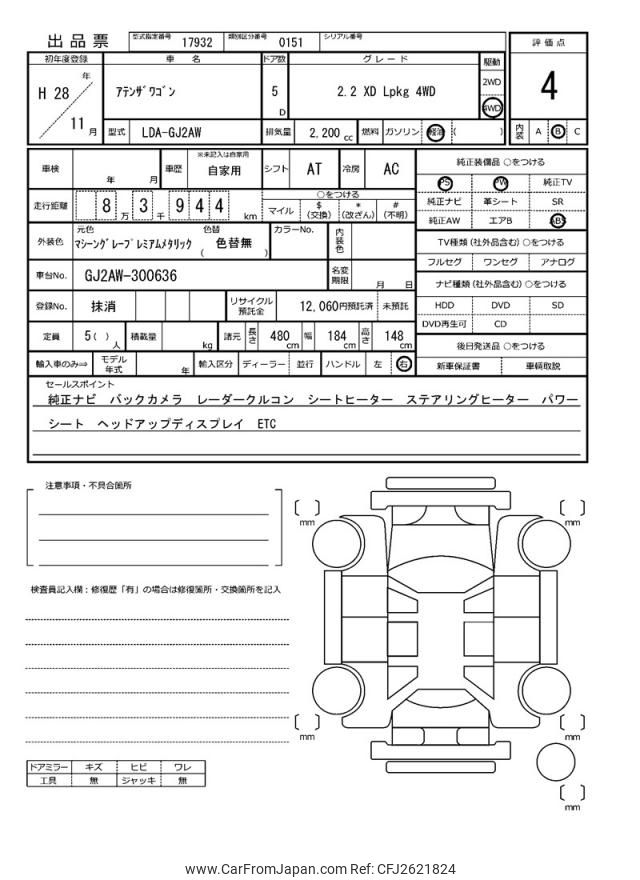 出品票
型式指定番号 17932 類別区分番号 0151 シリアル番号
評価点
4
初年度登録 車名 ドア数 グレード 駆動
H 28 年 11 月
ｱﾃﾝｻﾞﾜｺﾞﾝ
5 D
2.2 XD Lpkg 4WD
2WD
4WD
型式 LDA-GJ2AW 排気量 2,200 cc 燃料 ガソリン 軽油 ( )
内装 A B C
車検 年 月 車歴 ※未記入は自家用 自家用 シフト AT 冷房 AC
走行距離 8 万 3 千 9 4 4 km
○をつける
マイル $ (交換) * (改ざん) # (不明)
外装色 元色 ﾏｼｰﾝｸﾞﾚｰﾌﾟﾚﾐｱﾑﾒﾀﾘｯｸ 色替 ( 色替無 ) カラーNo. 内装色
車台No. GJ2AW-300636 名変期限 月 日
登録No. 抹消 リサイクル預託金 12,060円預託済 未預託
定員 5( ) 人 積載量 kg 諸元 長さ 480 cm 幅 184 cm 高さ 148 cm
輸入車のみ⇒ モデル年式 年 輸入区分 ディーラー 並行 ハンドル 左 右
純正装備品 ○をつける
PS PW 純正TV
純正ナビ 革シート SR
純正AW エアB ABS
TV種類 (社外品含む) ○をつける
フルセグ ワンセグ アナログ
ナビ種類 (社外品含む) ○をつける
HDD DVD SD
DVD再生可 CD
後日発送品 ○をつける
新車保証書 車輌取説
セールスポイント
純正ナビ バックカメラ レーダークルコン シートヒーター ステアリングヒーター パワー
シート ヘッドアップディスプレイ ETC
注意事項・不具合箇所
検査員記入欄：修復歴「有」の場合は修復箇所・交換箇所を記入
ドアミラー キズ ヒビ ワレ
工具 無 ジャッキ 無
mm
mm
mm
mm
mm
www.CarFromJapan.com Ref: CFJ2621824